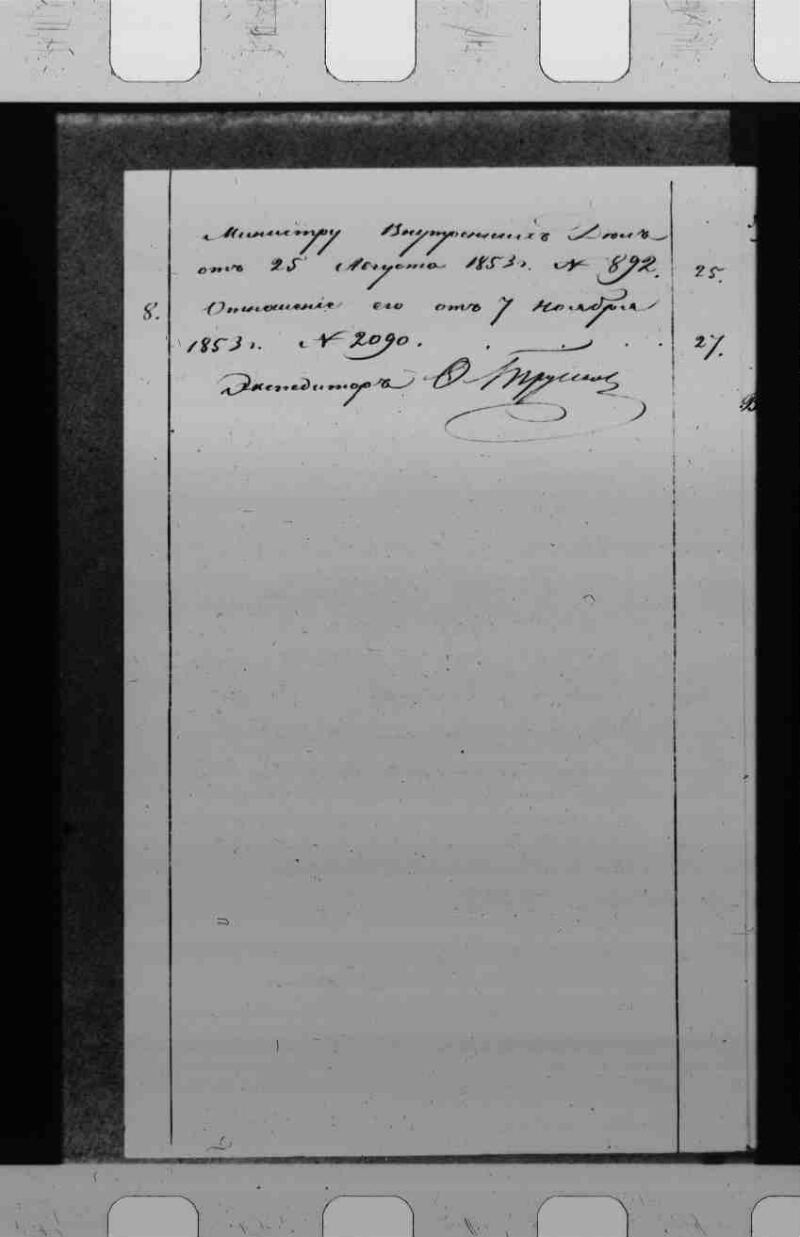 Министру Внутреннихъ Дѣлъ
отъ 25 Августа 1853 г. № 892. 25.
8. Отношеніе его отъ 7 Ноября
1853 г. № 2090. . . . . 27.
Экспедиторъ